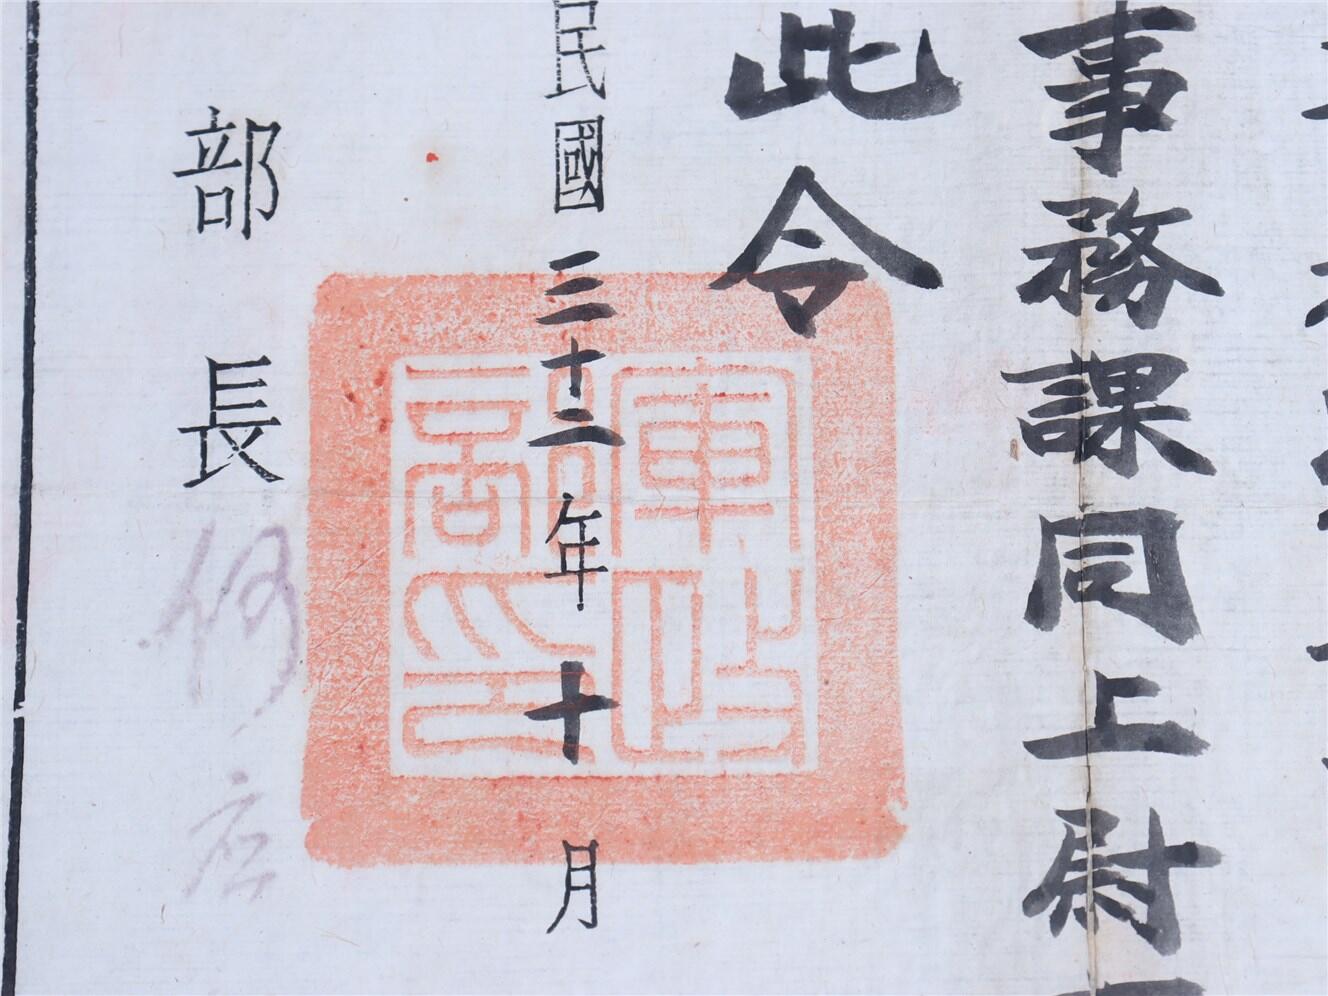 事務課同上尉
此令
民國三十三年十月
部長何应
軍政部印